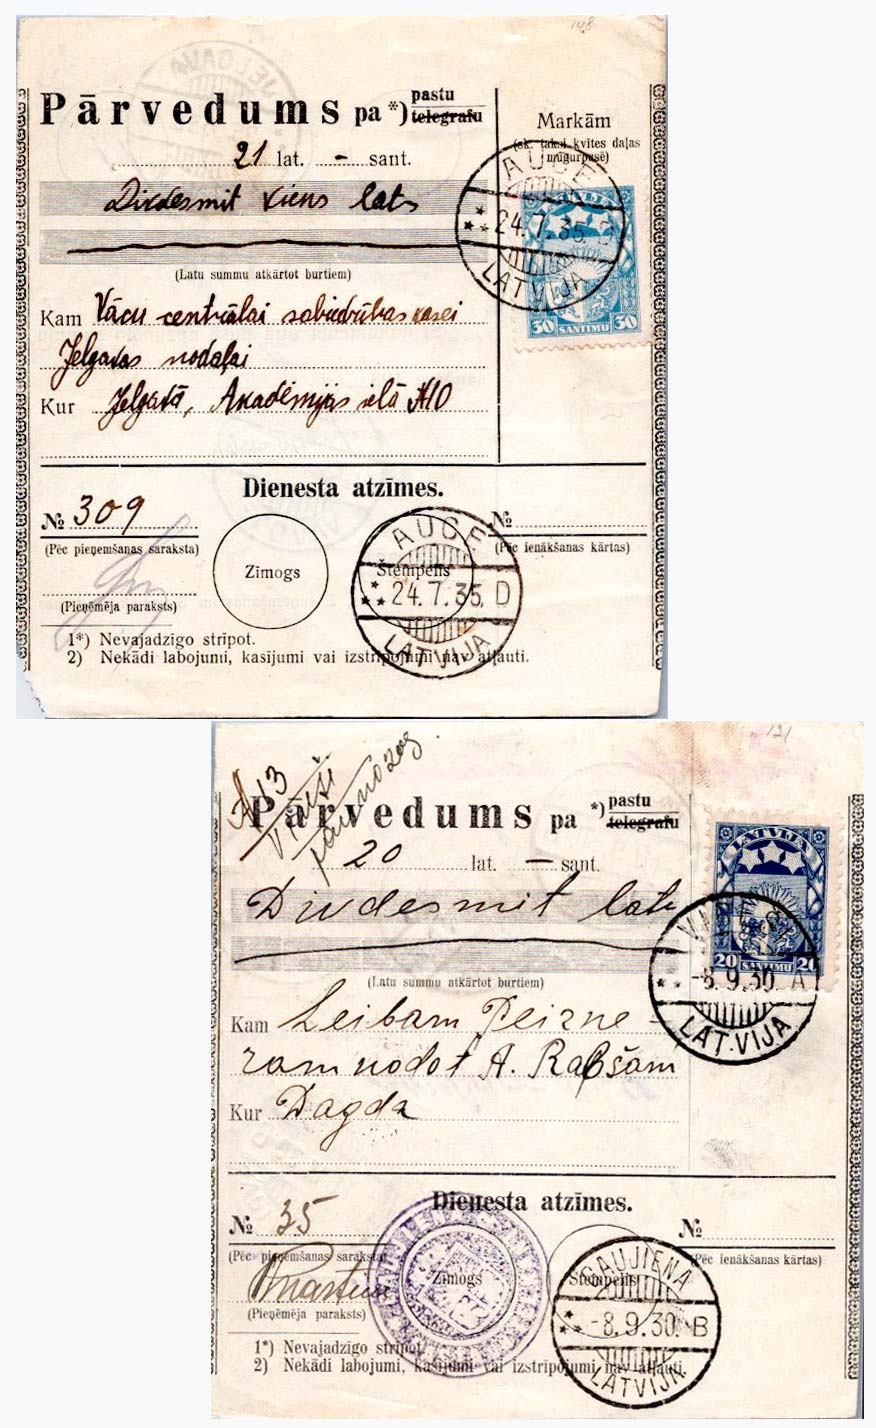 148
Pārvedums pa *) pastu
telegrafu
21 lat. — sant.
Divdesmit viens lats
(Latu summu atkārtot burtiem)
Kam Vācu centrālai sabiedrības kasei
Jelgavas nodaļai
Kur Jelgavā, Akadēmijas ielā №10
Markām
(sk. taksi kvites daļas
mugurpusē)
AUCE
24.7.35. D
LATVIJA
LATVIJA
30 SANTIMU 30
Dienesta atzīmes.
№ 309
(Pēc pieņemšanas saraksta)
(Pieņēmēja paraksts)
Zīmogs
Štempelis
AUCE
24.7.35. D
LATVIJA
№
(Pēc ienākšanas kārtas)
1*) Nevajadzīgo strīpot.
2) Nekādi labojumi, kasījumi vai izstrīpojumi nav atļauti.
121
13
Pārvedums pa *) pastu
telegrafu
20 lat. — sant.
Divdesmit lati
(Latu summu atkārtot burtiem)
Kam Leibam Peizne-
ram nodot A. Rabšam
Kur Dagda
LATVIJA
20 SANTIMU 20
-8.9.30. A
LATVIJA
Dienesta atzīmes.
№ 35
(Pēc pieņemšanas saraksta)
(Pieņēmēja paraksts)
Zīmogs
Štempelis
GAUJIENA
-8.9.30. B
LATVIJA
№
(Pēc ienākšanas kārtas)
1*) Nevajadzīgo strīpot.
2) Nekādi labojumi, kasījumi vai izstrīpojumi nav atļauti.